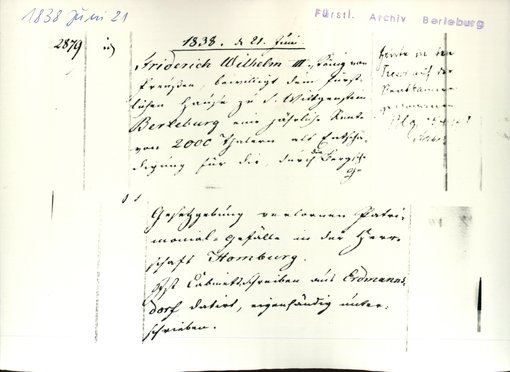 1838 Juni 21
Fürstl. Archiv Berleburg
2879
1838. d 21. Juni
Friderich Wilhelm III. König von
Preußen, bewilligt dem Fürst-
lichen Hause zu S. Wittgenstein
Berleburg eine jährliche Rente
von 2000 Thalern als Entschä-
digung für die, durch die Bergische
Gesetzgebung verlornen Patri-
monial-Gefälle in der Herr-
schaft Homburg.
Ist Cabinets-Schreiben aus Erdmanns-
dorf datirt, eigenhändig unter-
schrieben.